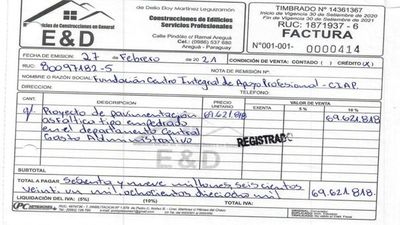 de Delio Doy Martinez Leguizamón
Construcciones en General
E&D
Construcciones de Edificios
Servicios Profesionales
Calle Pindóty c/ Ramal Areguá
Cel.: (0986) 537 680
Areguá - Paraguay
TIMBRADO Nº 14361367
Inicio de Vigencia 30 de Setiembre de 2020
Fin de Vigencia 30 de Setiembre de 2021
RUC: 1871937 - 6
FACTURA
Nº 001-001- 0000414
FECHA DE EMISION: 27 de Febrero de 20 21
CONDICIÓN DE VENTA: CONTADO ( ) CRÉDITO (x)
RUC: 80097182-5
NOTA DE REMISIÓN Nº:
NOMBRE O RAZÓN SOCIAL: Fundación Centro Integral de Apoyo Profesional - CIAP.
DIRECCIÓN:
TELÉFONO:
CANT.
DESCRIPCIÓN
PRECIO UNITARIO
VALOR DE VENTA
EXENTAS
5%
10%
Proyecto de pavimentación 69.621.818 69.621.818
asfáltica tipo empedrado
en el departamento Central
Gasto Administrativo
REGISTRADO
E&D
SUBTOTAL
TOTAL A PAGAR Sesenta y nueve millones seis cientos
veinti un mil ochocientos dieciocho mil 69.621.818.
LIQUIDACIÓN DEL IVA: (5%) (10%) TOTAL IVA: